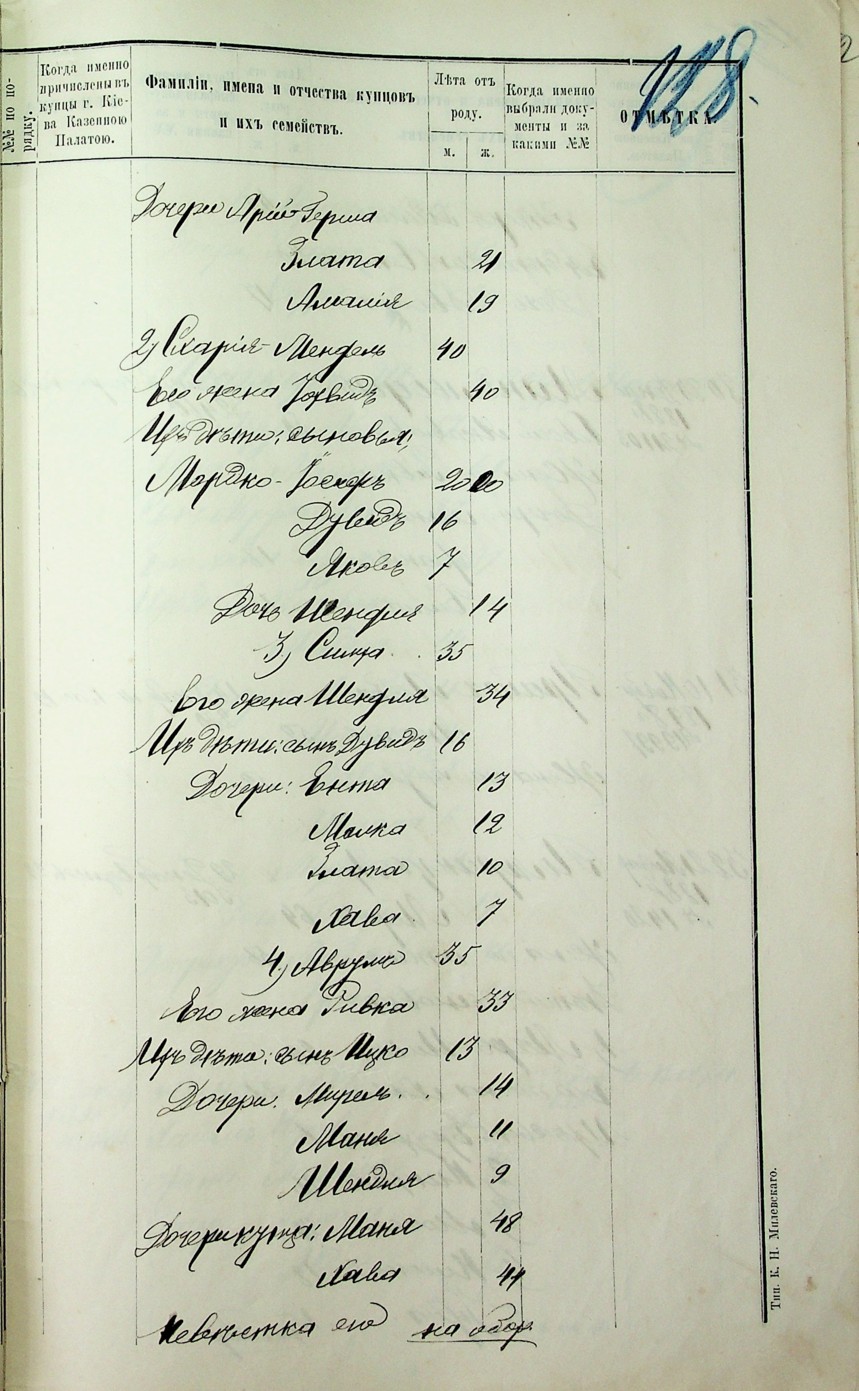 128.
№№ по порядку.
Когда именно причислены въ купцы г. Кіева Казенною Палатою.
Фамиліи, имена и отчества купцовъ и ихъ семействъ.
Лѣта отъ роду.
м. ж.
Когда именно выбрали документы и за какими №№
ОТМѢТКА.
Дочери Арій Герша
Злата 21
Амалія 19
2) Схарія-Мендель 40
Его жена 40
Ихъ дѣти: сыновья:
Мордко-Іосифъ 20
Дувидъ 16
Яковъ 7
Дочь Шендля 14
3) Симха 35
Его жена Шендля 34
Ихъ дѣти: сынъ Дувидъ 16
Дочери: Ента 13
Малка 12
Злата 10
Хава 7
4) Аврумъ 35
Его жена Ривка 33
Ихъ дѣти: сынъ Ицко 13
Дочери: Мирель 14
Маня 11
Шендля 9
Дочери купца: Маня 48
Хава 44
Невѣстка его на обор
Тип. К. Н. Милевскаго.